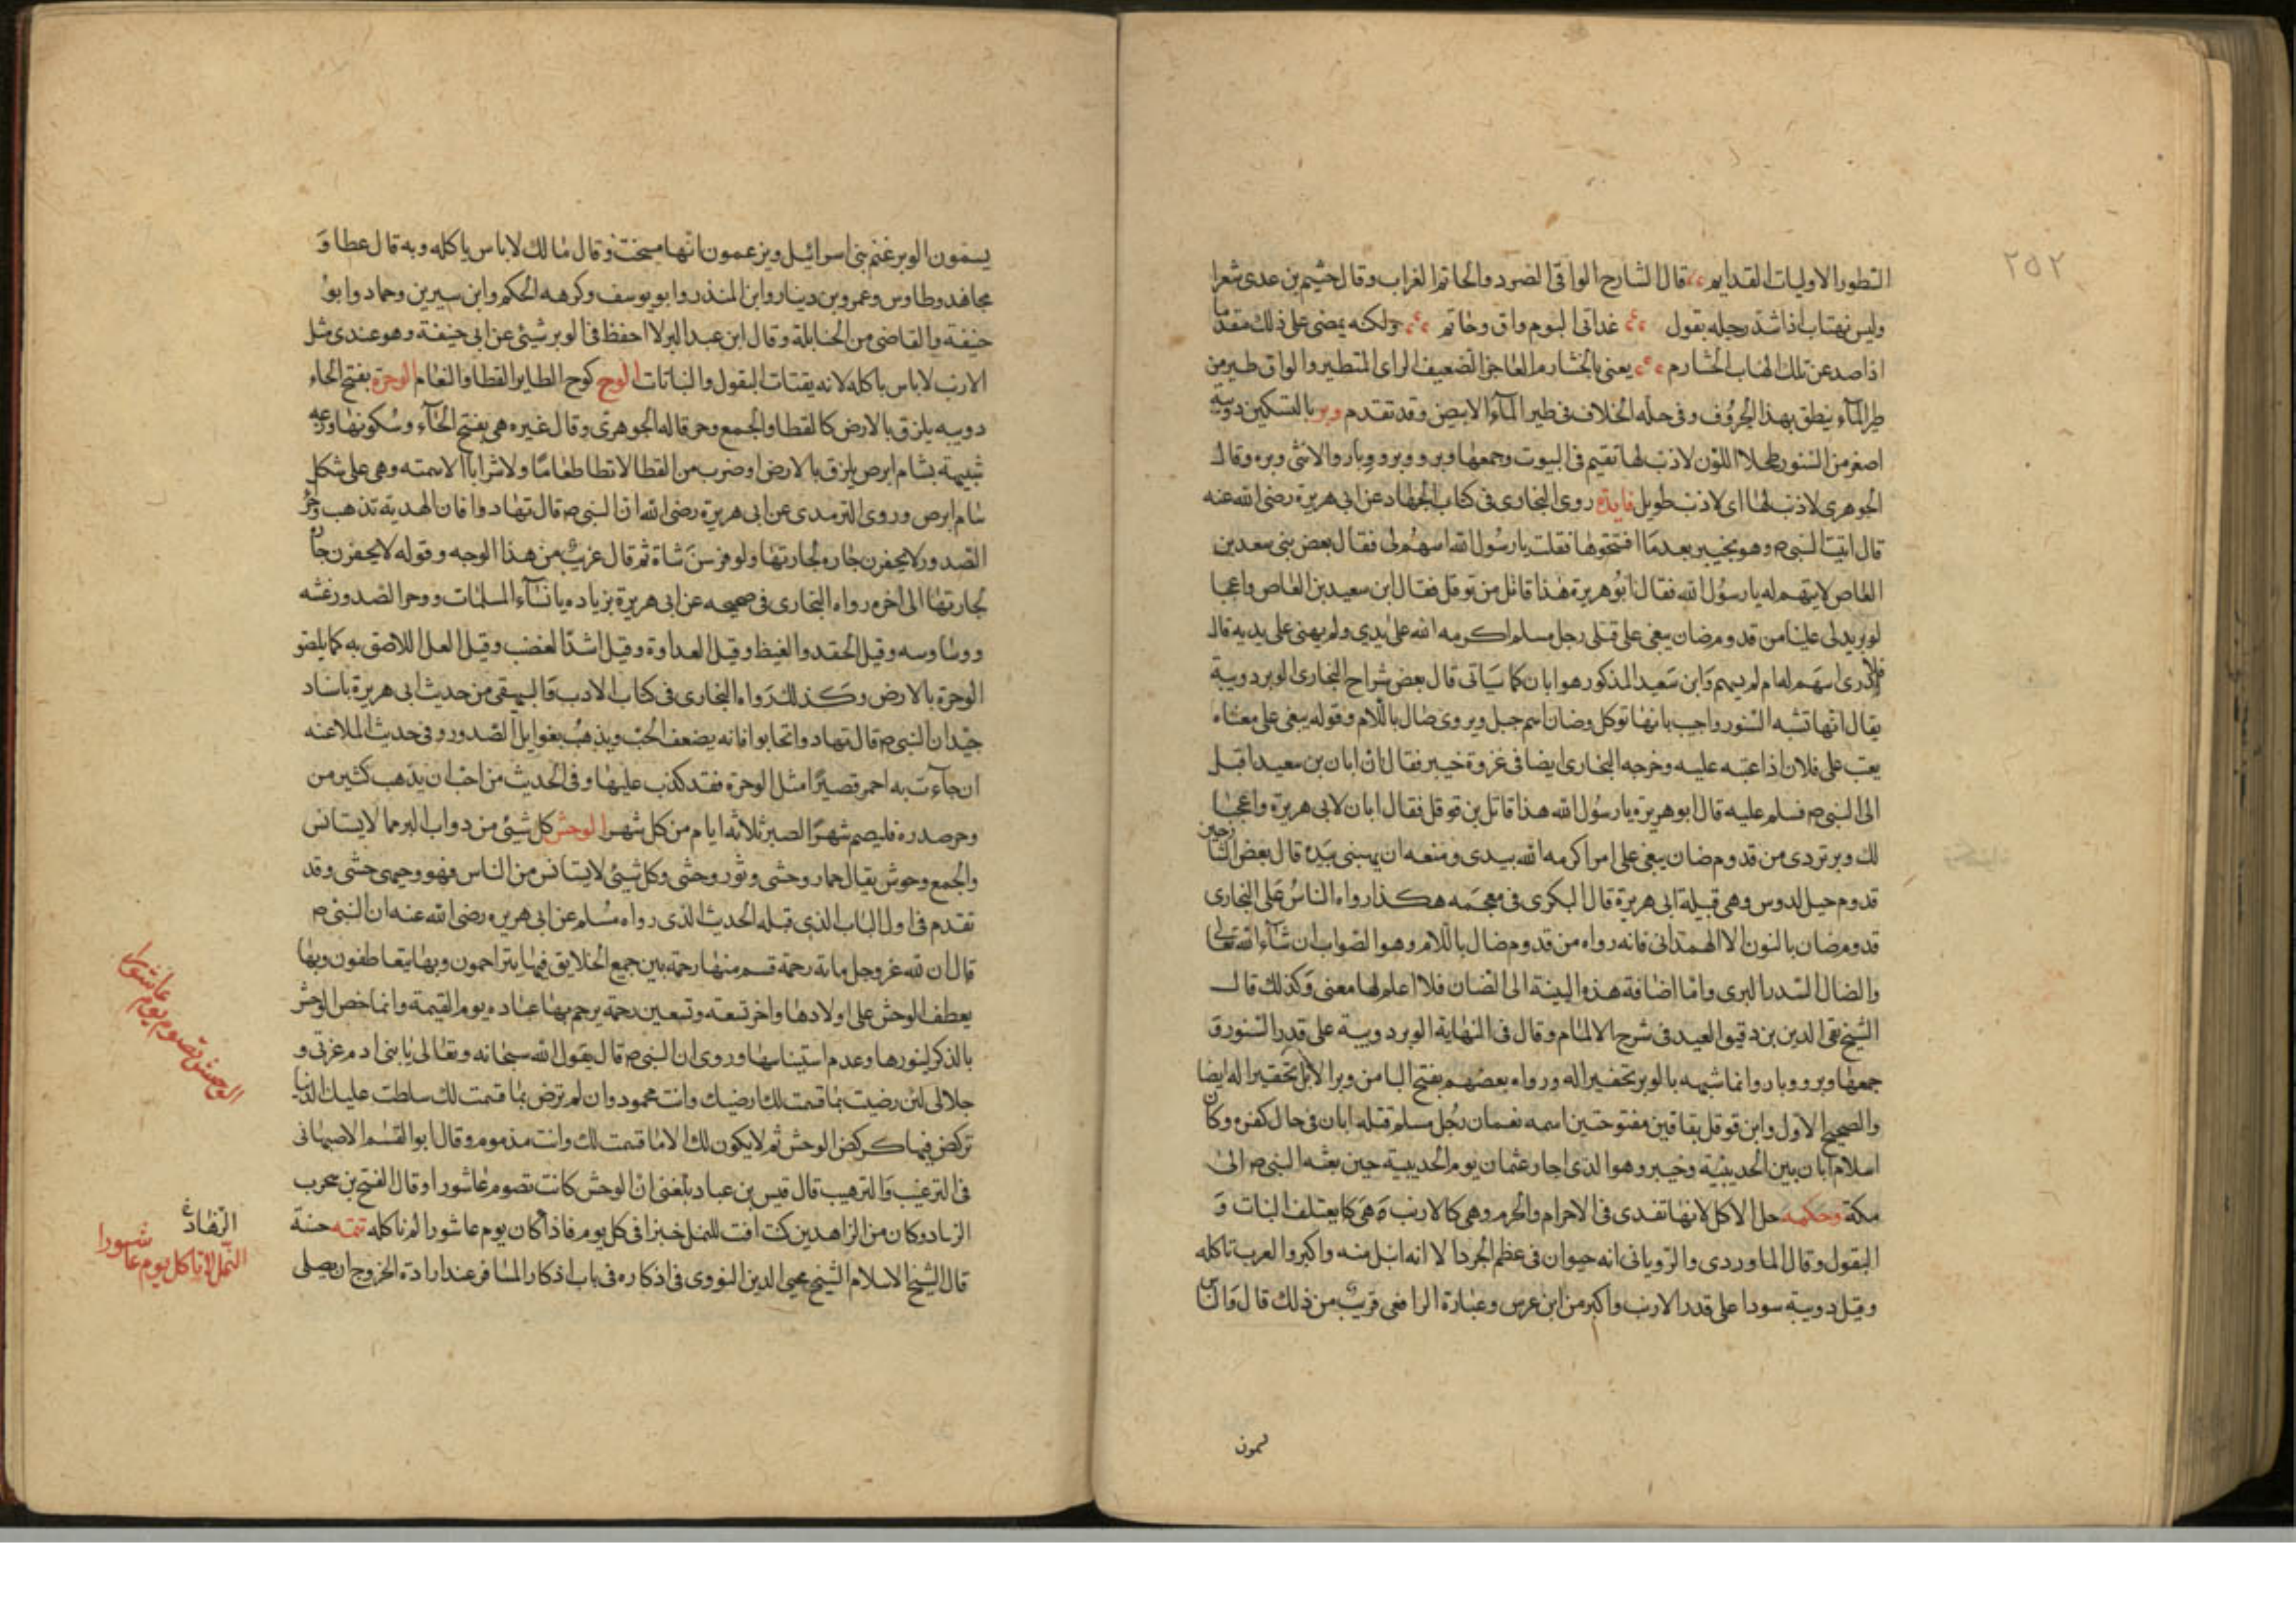 ٢٥٢
السطور الاوليات القدايم قال الشارح الواقى الصرد والحاتم الغراب وقال خثيم بن عدى شعرا
وليس بهتاب اذا شد رحله يقول غدانى اليوم واق وحاتم ولكنه يمضى على ذلك مقدما
اذا صد عن تلك الهناب الخشارم يعنى بالخشارم العاجز الضعيف الراى المتطير والواق طير من
طير المآء ينطق بهذا الحروف وفى حله الخلاف فى طير المآء الابيض وقد تقدم وبر بالتسكين دويبة
اصغر من السنور طحلا اللون لاذنب لها تقيم فى البيوت وجمعها وبر ووبرو وبار والانثى وبره وقال
الجوهرى لاذنب لها اى لاذنب طويل فايدة روى البخارى فى كتاب الجهاد عن ابى هريرة رضى الله عنه
قال اتيت النبى ص وهو بخيبر بعد ما افتتحوها فقلت يا رسول الله اسهم لى فقال بعض بنى سعد بن
العاص لا يتهم له يا رسول الله فقال ابو هريرة هذا قاتل من قوقل فقال ابن سعيد بن العاص واعجبا
لوبر يدلى علينا من قدوم ضان ينعى على قتلى رجل مسلم اكرمه الله على يدي ولم يهنى على يديه قال
فلا ادرى اسهم له ام لم يسهم وابن سعيد المذكور هو ابان كما سياتى قال بعض شراح البخارى الوبر دويبة
يقال انها تشبه السنور واجب بانها توكل وضان اسم جبل ويروى ضال باللام وقوله ينعى على معناه
يعب على فلان اذا عتبه عليه وخرجه البخارى ايضا فى غزوة خيبر فقال ان ابان بن سعيد اقبل
الى النبى ص فسلم عليه قال ابو هريرة يا رسول الله هذا قاتل بن قوقل فقال ابان لابى هريرة واعجبا
لك وبر تردى من قدوم ضان ينعى على امرا كرمه الله بيدى ومنعه ان يهينى بيده قال بعض الشارحين
قدوم جبل لدوس وهى قبيلة ابى هريرة قال البكرى فى معجمه هكذا رواه الناس على البخارى
قدوم ضان بالنون الا الهمدانى فانه رواه من قدوم ضال باللام وهو الصواب ان شآء الله تعالى
والضال السدر البرى واما اضافة هذه الينية الى الضان فلا اعلم لها معنى وكذلك قال
الشيخ تقى الدين بن دقيق العيد فى شرح الالمام وقال فى النهاية الوبر دويبة على قدر السنور ق
جمعها وبر ووبار وانما شبهه بالوبر تحقيرا له ورواه بعضهم بفتح البا من وبر الابل تحقيرا له ايضا
والصحيح الاول وابن قوقل بقافين مفتوحتين اسمه نعمان رجل مسلم قتله ابان فى حال كفره وكان
اسلام ابان بين الحديبية وخيبر وهو الذى اجار عثمان يوم الحديبية حين بعثه النبى ص الى
مكة وحكمه حل الاكل لانها تفدى فى الاحرام والحرم وهى كالارنب وهى كا يعتلف النبات و
البقول وقال الماوردى والرويانى انه حيوان فى عظم الجرذ الا انه انبل منه واكبر والعرب تاكله
وقيل دويبة سودا على قدر الارنب واكبر من ابن عرس وعبارة الرافعى قريب من ذلك قال والناس
يسمون
يسمون الوبر غنم بنى اسرائيل ويزعمون انها مسخت وقال مالك لا باس باكله وبه قال عطا و
مجاهد وطاوس وعمرو بن دينار وابن المنذر وابو يوسف وكرهه الحكم وابن سيرين وحماد وابو
حنيفة والقاضى من الحنابلة وقال ابن عبد البر لا احفظ فى الوبر شيئى عن ابى حنيفة وهو عندى مثل
الارنب لا باس باكله لانه يقتات البقول والنباتات الوح كوح الطاير القطا والنعام الوحرة بفتح الحاء
دويبه يلزق بالارض كالقطا والجمع وحر قاله الجوهرى وقال غيره هى بفتح الحآء وسكونها وزعه
شبيهة بسام ابرص يلزق بالارض او ضرب من القطا لا تطا طعاما ولا شرابا الا سمته وهى على شكل
سام ابرص وروى الترمدى عن ابى هريرة رضى الله ان النبى ص قال تهادوا فان الهدية تذهب وحر
الصدور لا يحقرن جاره لجارتها ولو فرسن شاة ثم قال غريب من هذا الوجه وقوله لا يحقرن جارة
لجارتها الى اخره رواه البخارى فى صحيحه عن ابى هريرة بزياده يا نسآء المسلمات ووحر الصدور غشه
ووساوسه وقيل الحقد والغيظ وقيل العداوة وقيل اشد الغضب وقيل الغل اللاصق به كما يلصق
الوحرة بالارض وكذلك رواه البخارى فى كتاب الادب والبيهقى من حديث ابى هريرة باسناد
جيد ان النبى ص قال تهادوا تحابوا فانه يضعف الحب ويذهب بغوايل الصدور وفى حديث الملاعنه
ان جاءت به احمر قصيرا مثل الوحرة فقد كذب عليها وفى الحديث من احب ان يذهب كثير من
وحر صدره فليصم شهر الصبر ثلاثه ايام من كل شهر الوحش كل شيئى من دواب البر مما لا يستانس
والجمع وحوش يقال حمار وحشى وثور وحشى وكل شيئى لا يستانس من الناس فهو وحمى حشى وقد
تقدم فى اول الباب الذى قبله الحديث الذى رواه مسلم عن ابى هريره رضى الله عنه ان النبى ص
قال ان لله عز وجل ماية رحمة قسم منها رحمة بين جميع الخلايق فبها يتراحمون وبها يتعاطفون وبها
يعطف الوحش على اولادها واخر تسعه وتسعين رحمة يرحم بها عباده يوم القيمة وانما خص الوحش
بالذكر لنفورها وعدم استيناسها وروى ان النبى ص قال يقول الله سبحانه وتعالى يا بنى ادم عزتى و
جلالى لئن رضيت بما قسمت لك ارضيك وانت محمود وان لم ترض بما قسمت لك سلطت عليك الدنيا
تركض فيها كركض الوحش ثم لا يكون لك الا ما قسمت لك وانت مذموم وقال ابو القسم الاصبهانى
فى الترغيب والترهيب قال قيس بن عباد بلغنى ان الوحش كانت تصوم عاشورا وقال الفتح بن سحرب
الزماد وكان من الزاهدين كنت افت للنمل خبزا فى كل يوم فاذا كان يوم عاشورا لم تاكله تتمه حسنة
قال الشيخ الاسلام الشيخ محيى الدين النووى فى اذكاره فى باب اذكار المسافر عند ارادة الخروج ان يصلى
الوحش تصوم يوم عاشورا
الزهاد
النمل لا تاكل يوم عاشورا